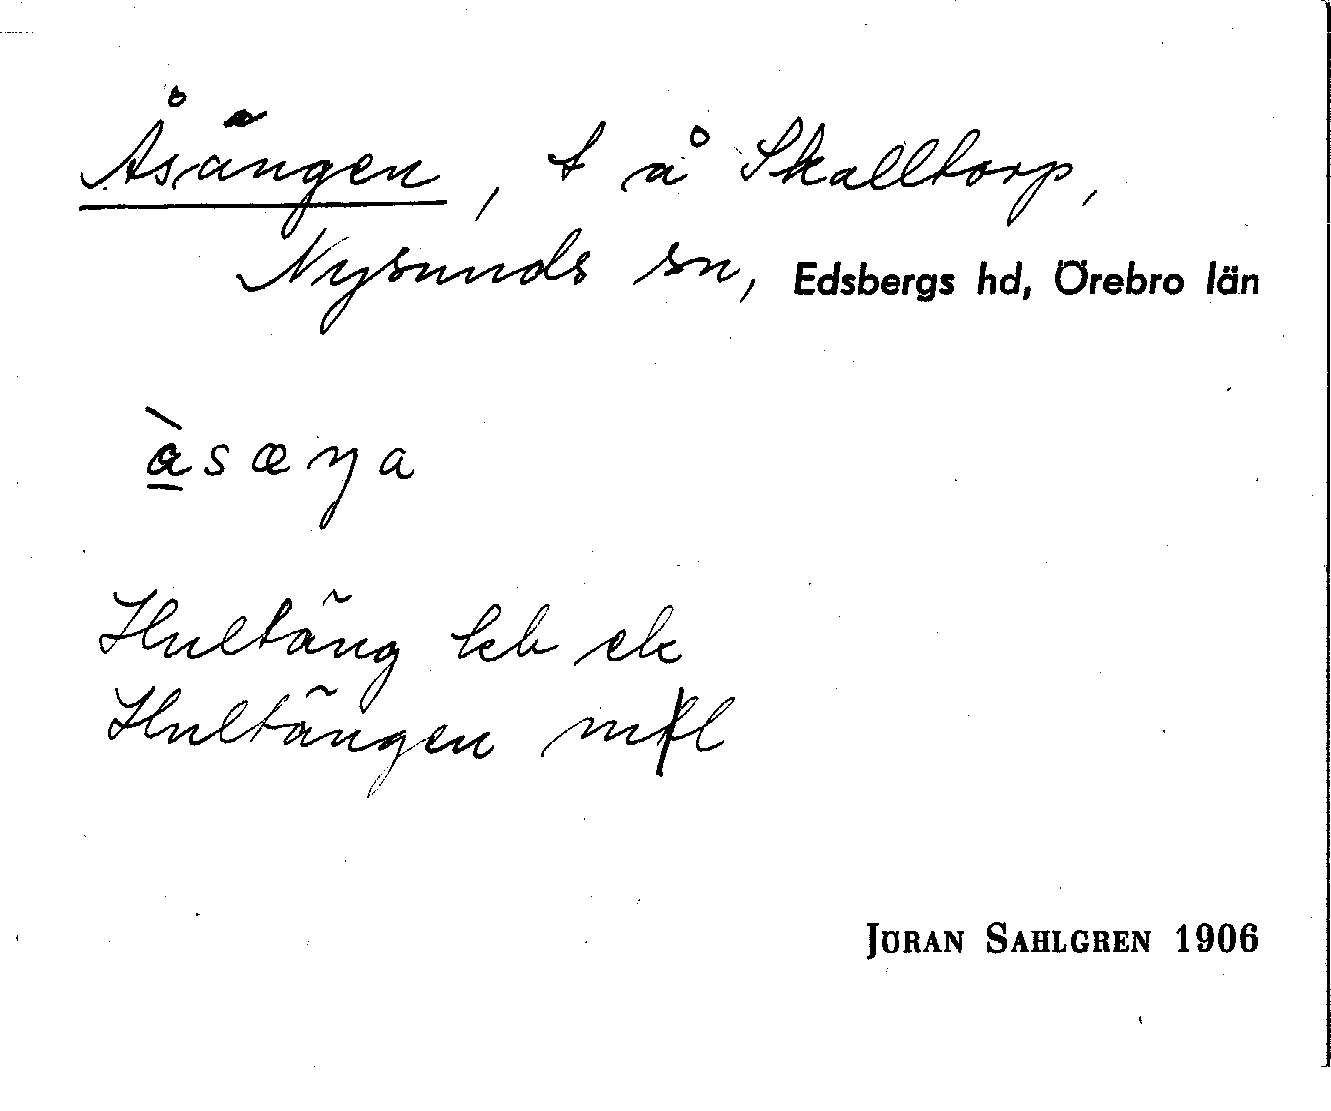 Åsängen, t å Skalltorp,
Nysunds sn, Edsbergs hd, Örebro län
à̲sæŋa
Hultäng kb ek
Hultängen mfl
JÖRAN SAHLGREN 1906